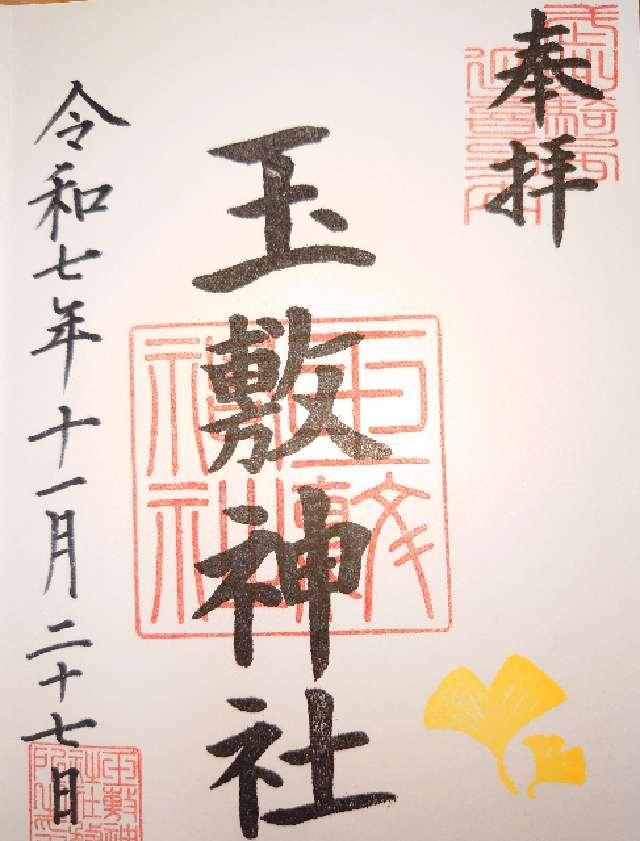 奉拝
玉敷神社
令和七年十一月二十七日
玉敷神社